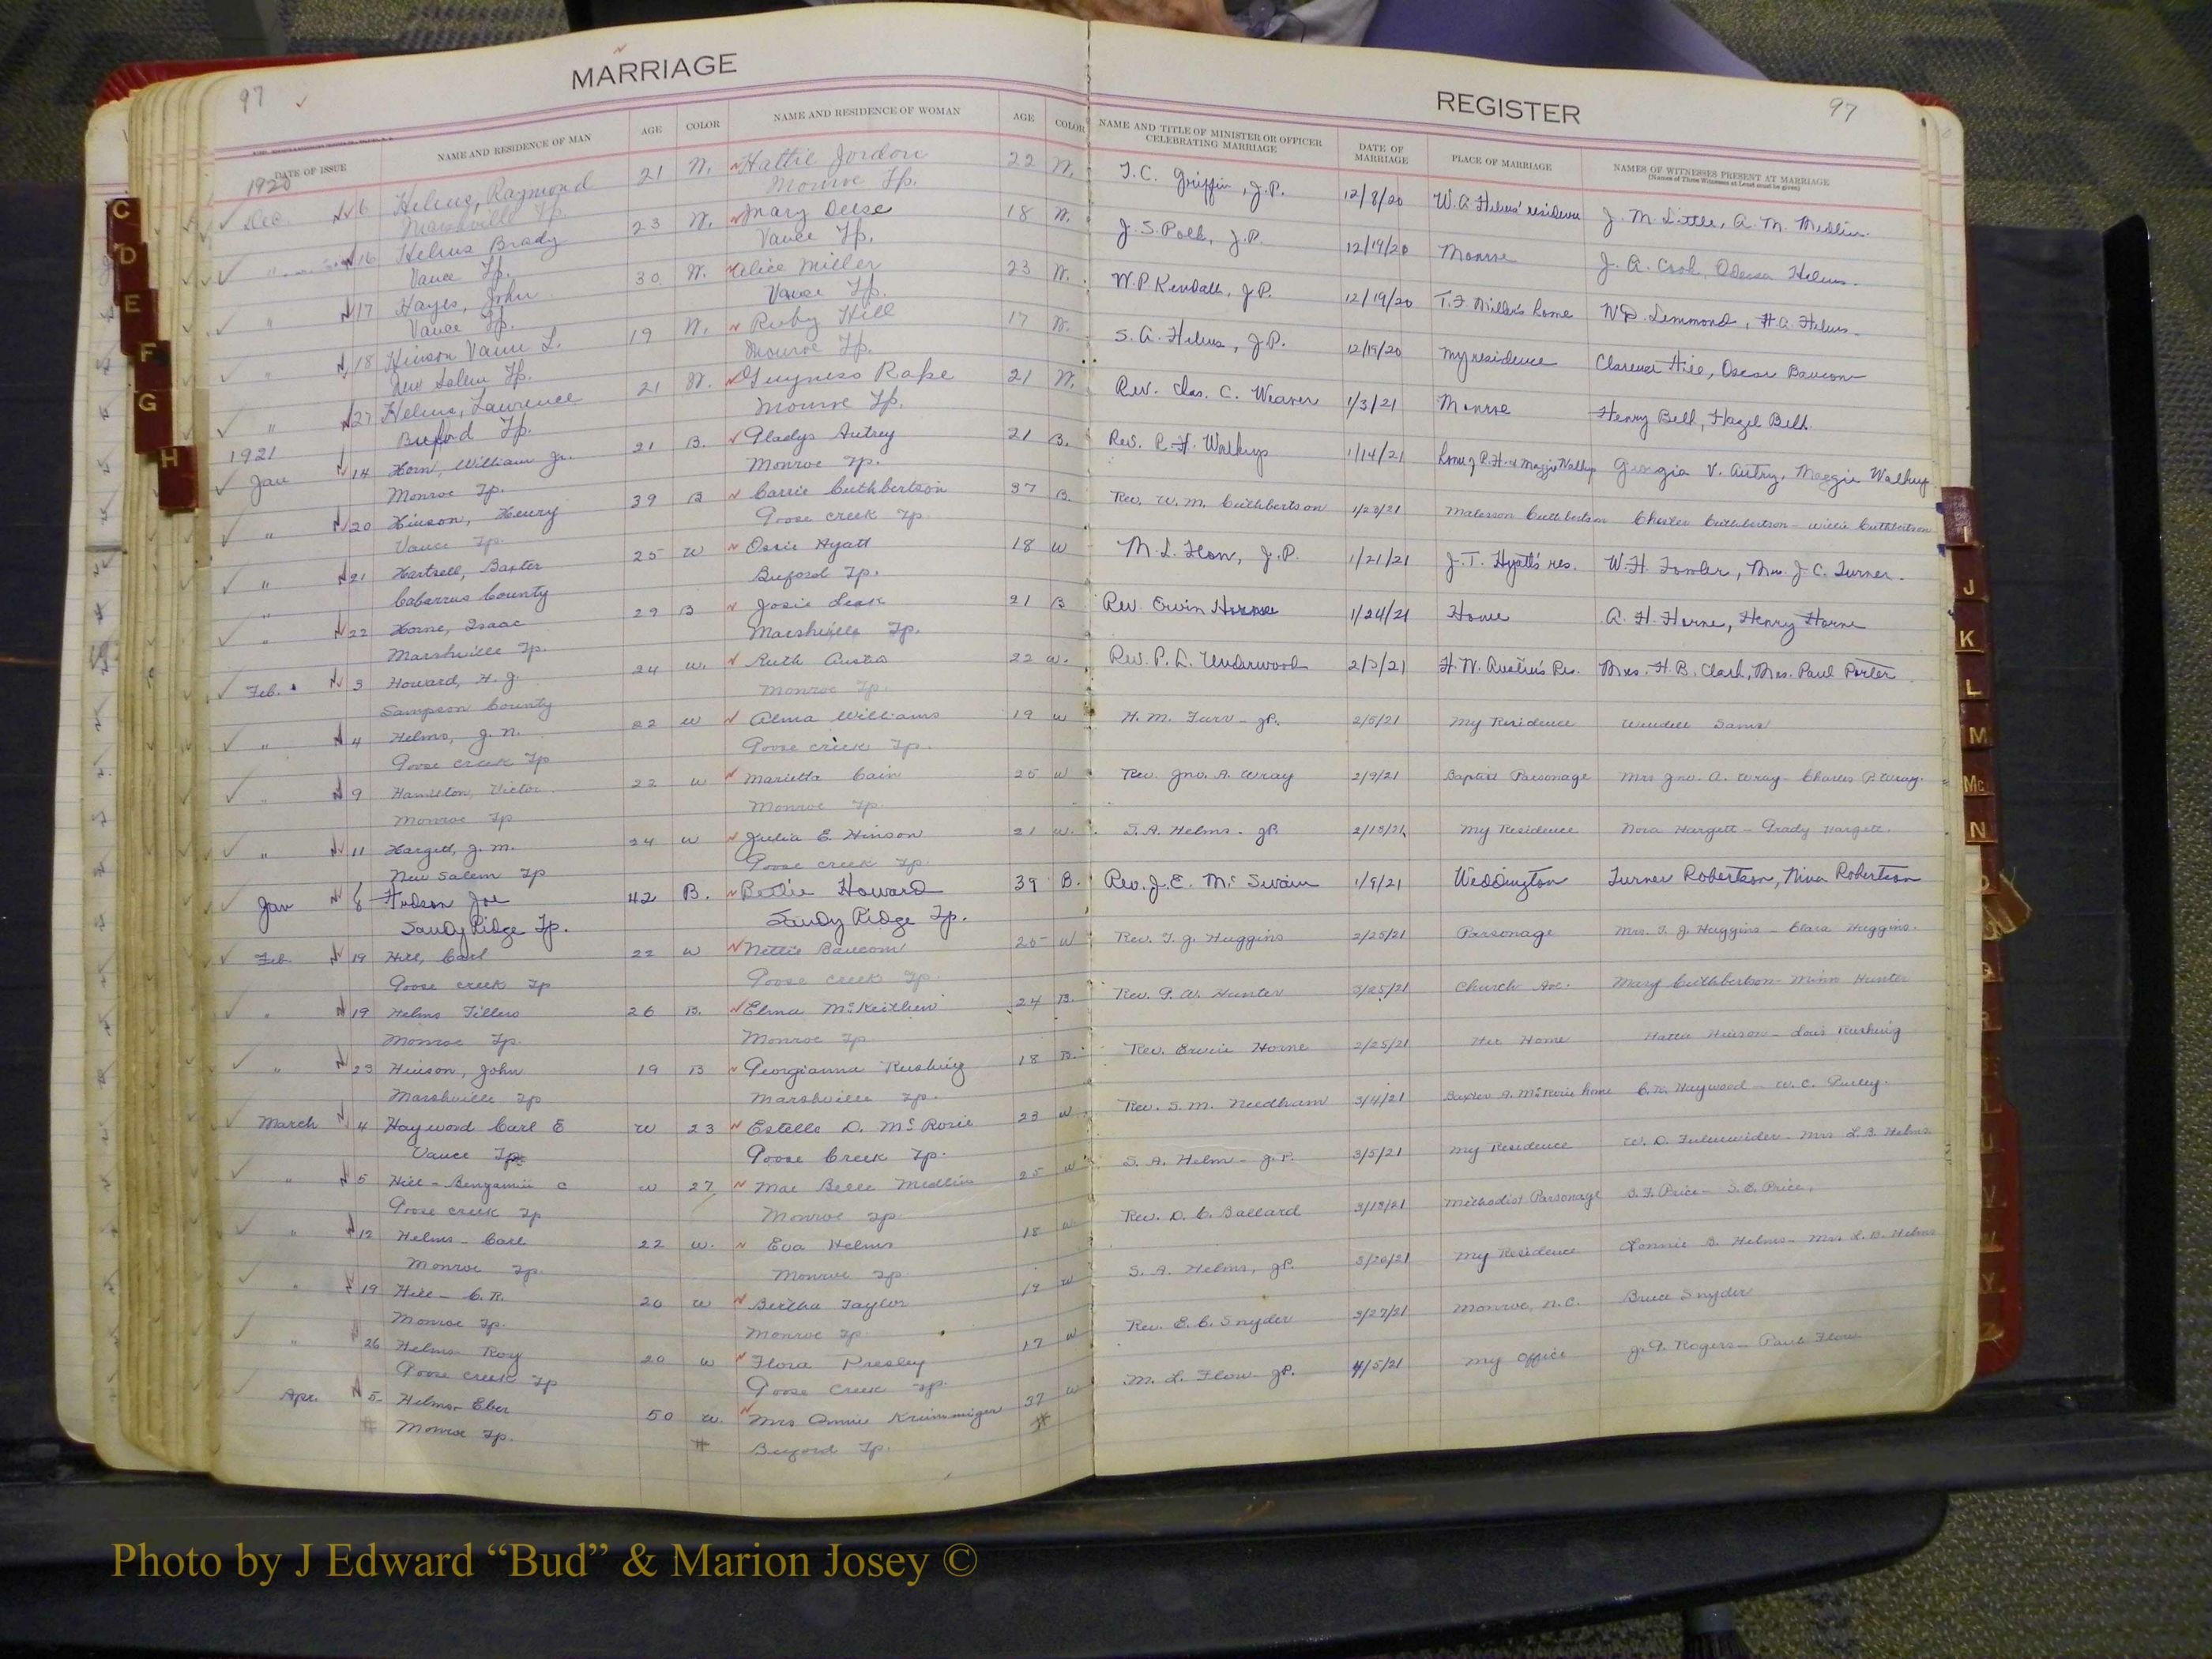 97 MARRIAGE
REGISTER 97
DATE OF ISSUE NAME AND RESIDENCE OF MAN AGE COLOR NAME AND RESIDENCE OF WOMAN AGE COLOR NAME AND TITLE OF MINISTER OR OFFICER CELEBRATING MARRIAGE DATE OF MARRIAGE PLACE OF MARRIAGE NAMES OF WITNESSES PRESENT AT MARRIAGE
(Names of Three Witnesses at Least must be given)
1920
Dec. 6 Helms, Raymond 21 W. Hattie Jordon 22 W. T. C. Griffin, J.P. 12/8/20 W. A. Helms' residence J. M. Little, A. M. Medlin.
Marshville Tp. Monroe Tp.
" 16 Helms Brady 23 W. Mary Deese 18 W. J. S. Polk, J.P. 12/19/20 Monroe J. A. Cook, Odessa Helms.
Vance Tp. Vance Tp.
" 17 Hayes, John 30 W. Alice Miller 23 W. W. P. Kendall, J.P. 12/19/20 T. F. Miller's home Lemmond, H. A. Helms
Vance Tp. Vance Tp.
" 18 Hinson Vann L. 19 W. Ruby Hill 17 W. S. A. Helms, J.P. 12/19/20 My residence Clarence Hill, Oscar Baucom
New Salem Tp. Monroe Tp.
" 27 Helms, Lawrence 21 W. Guyness Rape 21 W. Rev. Chas. C. Weaver 1/3/21 Monroe Henry Belk, Hazel Belk
Buford Tp. Monroe Tp.
1921
Jan 14 Horn, William Jr. 21 B. Gladys Autrey 21 B. Rev. R. H. Walkup 1/14/21 home of R. H. & Maggie Walkup Georgia V. Autry, Maggie Walkup
Monroe Tp. Monroe Tp.
" 20 Hinson, Henry 39 B Carrie Cuthbertson 37 B. Rev. W. M. Cuthbertson 1/23/21 Cuthbertson Chester Cuthbertson - Willie Cuthbertson
Vance Tp. Goose creek Tp.
" 21 Hartsell, Baxter 25 W Ossie Hyatt 18 W M. L. Flow, J.P. 1/21/21 J. T. Hyatt's res. W. H. Fowler, Mrs. J. C. Turner.
" Cabarrus County Buford Tp.
" 22 Horne, Isaac 29 B Josie Leak 21 B Rev. Ervin Horne 1/24/21 Home A. H. Horne, Henry Horne
Marshville Tp. Marshville Tp.
Feb. 3 Howard, H. J. 24 W. Ruth Austin 22 W. Rev. P. L. Underwood 2/3/21 H. W. Austin's Res. Mrs. H. B. Clark, Mrs. Paul Porter
Sampson County Monroe Tp.
" 4 Helms, J. N. 22 W Alma Williams 19 W H. M. Furr - JP. 2/5/21 My Residence Wendell
Goose creek Tp Goose creek Tp.
" 9 Hamilton, Victor 22 W Marietta Cain 25 W Rev. Jno. A. Wray 2/9/21 Baptist Parsonage Mrs Jno. A. Wray - Charles B Wray.
Monroe Tp Monroe Tp.
" 11 Hargett, J. M. 24 W Julia E. Hinson 21 W. S. A. Helms - JP. 2/13/21 My Residence Nora Hargett - Grady Hargett.
New Salem Tp Goose creek Tp.
Jan 8 Hudson Joe 42 B. Bettie Howard 39 B. Rev. J. E. McSwain 1/9/21 Weddington Turner Robertson, Nina Robertson
Sandy Ridge Tp. Sandy Ridge Tp.
Feb. 19 Hill, Carl 22 W Nettie Baucom 25 W Rev. T. J. Huggins 2/25/21 Parsonage Mrs. T. J. Huggins - Clara Huggins.
Goose creek Tp Goose creek Tp.
" 19 Helms Tillero 26 B. Elma McKeithen 24 B. Rev. G. W. Hunter Church Ave. Mary Cuthbertson - Hunter
Monroe Tp. Monroe Tp.
" 23 Hinson, John 19 B Georgianna Rushing 18 B. Rev. Ervin Horne 2/25/21 Her Home Hattie Hinson - Louis Rushing
Marshville Tp Marshville Tp.
March 4 Haywood Carl E W 23 Estelle D. McRorie 23 W. Rev. S. M. Needham 3/4/21 Baxter A. McRorie home C. K. Haywood - W. C. Purley.
Vance Tp. Goose Creek Tp.
" 5 Hill - Benjamin C W 27 Mae Belle Medlin 25 W S. A. Helms - J.P. 3/5/21 My Residence W. D. Fulenwider - Mrs L. B. Helms.
Goose creek Tp Monroe Tp.
" 12 Helms - Carl 22 W. Eva Helms 18 W Rev. D. C. Ballard 3/13/21 Methodist Parsonage S. F. Price - S. E. Price.
Monroe Tp. Monroe Tp.
" 19 Hill - C. R. 20 W Bertha Taylor 19 W S. A. Helms, JP. 3/20/21 My Residence Lonnie B. Helms - Mrs L. B. Helms
Monroe Tp. Monroe Tp.
" 26 Helms - Roy 20 W Flora Presley 17 W Rev. E. C. Snyder 3/27/21 Monroe, N.C. Bruce Snyder
Goose creek Tp Goose Creek Tp.
Apr. 5 Helms - Eber 50 W. Mrs Annie Krimminger 37 W M. L. Flow - JP. 4/5/21 My Office J. A. Rogers - Paul Flow
Monroe Tp. Buford Tp.
C
D
E
F
G
H
I
J
K
L
M
Mc
N
Photo by J Edward “Bud” & Marion Josey ©